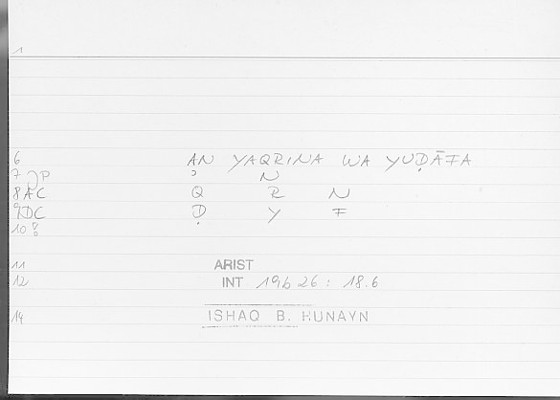 1
6 AN YAQRINA WA YUḌĀFA
7 ƆP Ɔ N
8 AC Q R N
9 DC Ḍ Y F
10
11 ARIST
12 INT 19b 26 : 18.6
14 ISHAQ B. HUNAYN